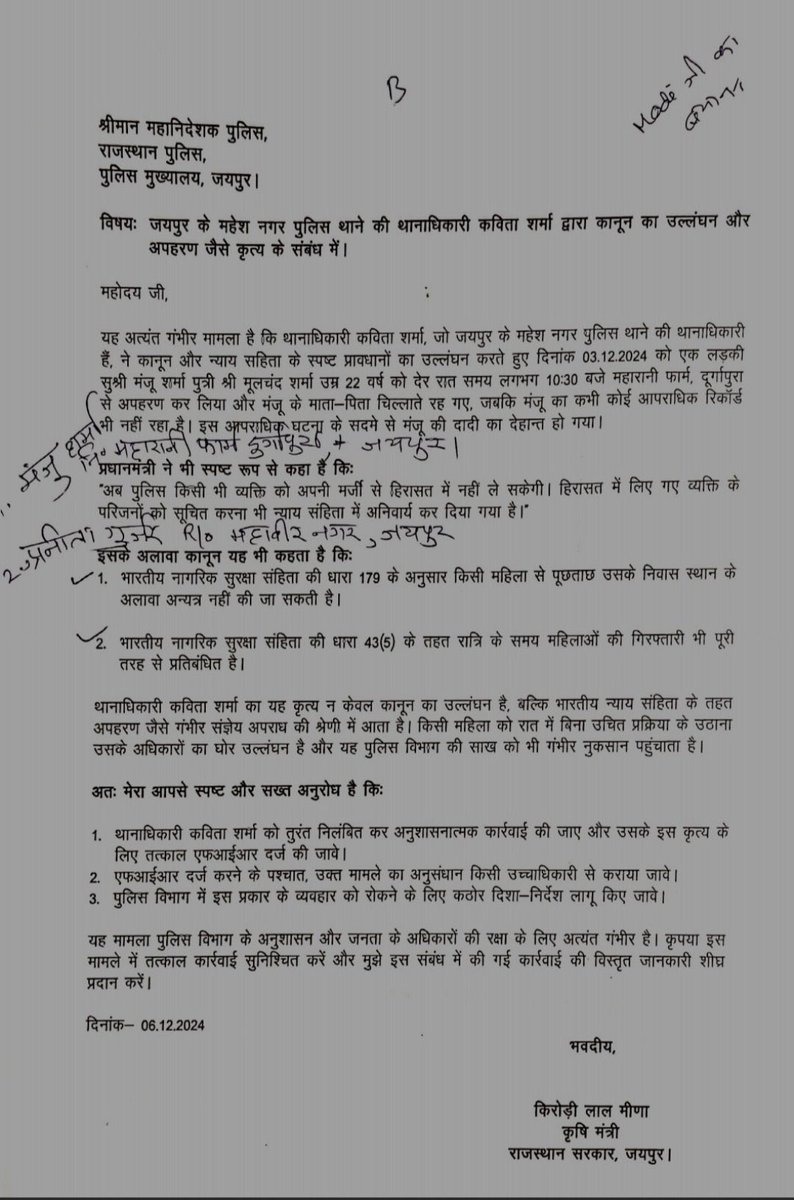 B
Modi जी का
श्रीमान महानिदेशक पुलिस,
राजस्थान पुलिस,
पुलिस मुख्यालय, जयपुर।
विषयः जयपुर के महेश नगर पुलिस थाने की थानाधिकारी कविता शर्मा द्वारा कानून का उल्लंघन और
अपहरण जैसे कृत्य के संबंध में।
महोदय जी,
यह अत्यंत गंभीर मामला है कि थानाधिकारी कविता शर्मा, जो जयपुर के महेश नगर पुलिस थाने की थानाधिकारी
हैं, ने कानून और न्याय सहिता के स्पष्ट प्रावधानों का उल्लंघन करते हुए दिनांक 03.12.2024 को एक लड़की
सुश्री मंजू शर्मा पुत्री श्री मूलचंद शर्मा उम्र 22 वर्ष को देर रात समय लगभग 10:30 बजे महारानी फार्म, दूर्गापुरा
से अपहरण कर लिया और मंजू के माता–पिता चिल्लाते रह गए, जबकि मंजू का कभी कोई आपराधिक रिकॉर्ड
भी नहीं रहा है। इस आपराधिक घटना के सदमे से मंजू की दादी का देहान्त हो गया।
1. मंजु शर्मा महारानी फार्म दुर्गापुरा, जयपुर।
प्रधानमंत्री ने भी स्पष्ट रूप से कहा है किः
"अब पुलिस किसी भी व्यक्ति को अपनी मर्जी से हिरासत में नहीं ले सकेगी। हिरासत में लिए गए व्यक्ति के
परिजनों को सूचित करना भी न्याय संहिता में अनिवार्य कर दिया गया है।"
2. प्रनीता गुर्जर R/o महावीर नगर, जयपुर
इसके अलावा कानून यह भी कहता है किः
1. भारतीय नागरिक सुरक्षा संहिता की धारा 179 के अनुसार किसी महिला से पूछताछ उसके निवास स्थान के
अलावा अन्यत्र नहीं की जा सकती है।
2. भारतीय नागरिक सुरक्षा संहिता की धारा 43(5) के तहत रात्रि के समय महिलाओं की गिरफ्तारी भी पूरी
तरह से प्रतिबंधित है।
थानाधिकारी कविता शर्मा का यह कृत्य न केवल कानून का उल्लंघन है, बल्कि भारतीय न्याय संहिता के तहत
अपहरण जैसे गंभीर संज्ञेय अपराध की श्रेणी में आता है। किसी महिला को रात में बिना उचित प्रक्रिया के उठाना
उसके अधिकारों का घोर उल्लंघन है और यह पुलिस विभाग की साख को भी गंभीर नुकसान पहुंचाता है।
अतः मेरा आपसे स्पष्ट और सख्त अनुरोध है किः
1. थानाधिकारी कविता शर्मा को तुरंत निलंबित कर अनुशासनात्मक कार्रवाई की जाए और उसके इस कृत्य के
लिए तत्काल एफआईआर दर्ज की जावे।
2. एफआईआर दर्ज करने के पश्चात, उक्त मामले का अनुसंधान किसी उच्चाधिकारी से कराया जावे।
3. पुलिस विभाग में इस प्रकार के व्यवहार को रोकने के लिए कठोर दिशा–निर्देश लागू किए जावे।
यह मामला पुलिस विभाग के अनुशासन और जनता के अधिकारों की रक्षा के लिए अत्यंत गंभीर है। कृपया इस
मामले में तत्काल कार्रवाई सुनिश्चित करें और मुझे इस संबंध में की गई कार्रवाई की विस्तृत जानकारी शीघ्र
प्रदान करें।
दिनांक– 06.12.2024
भवदीय,
किरोड़ी लाल मीणा
कृषि मंत्री
राजस्थान सरकार, जयपुर।